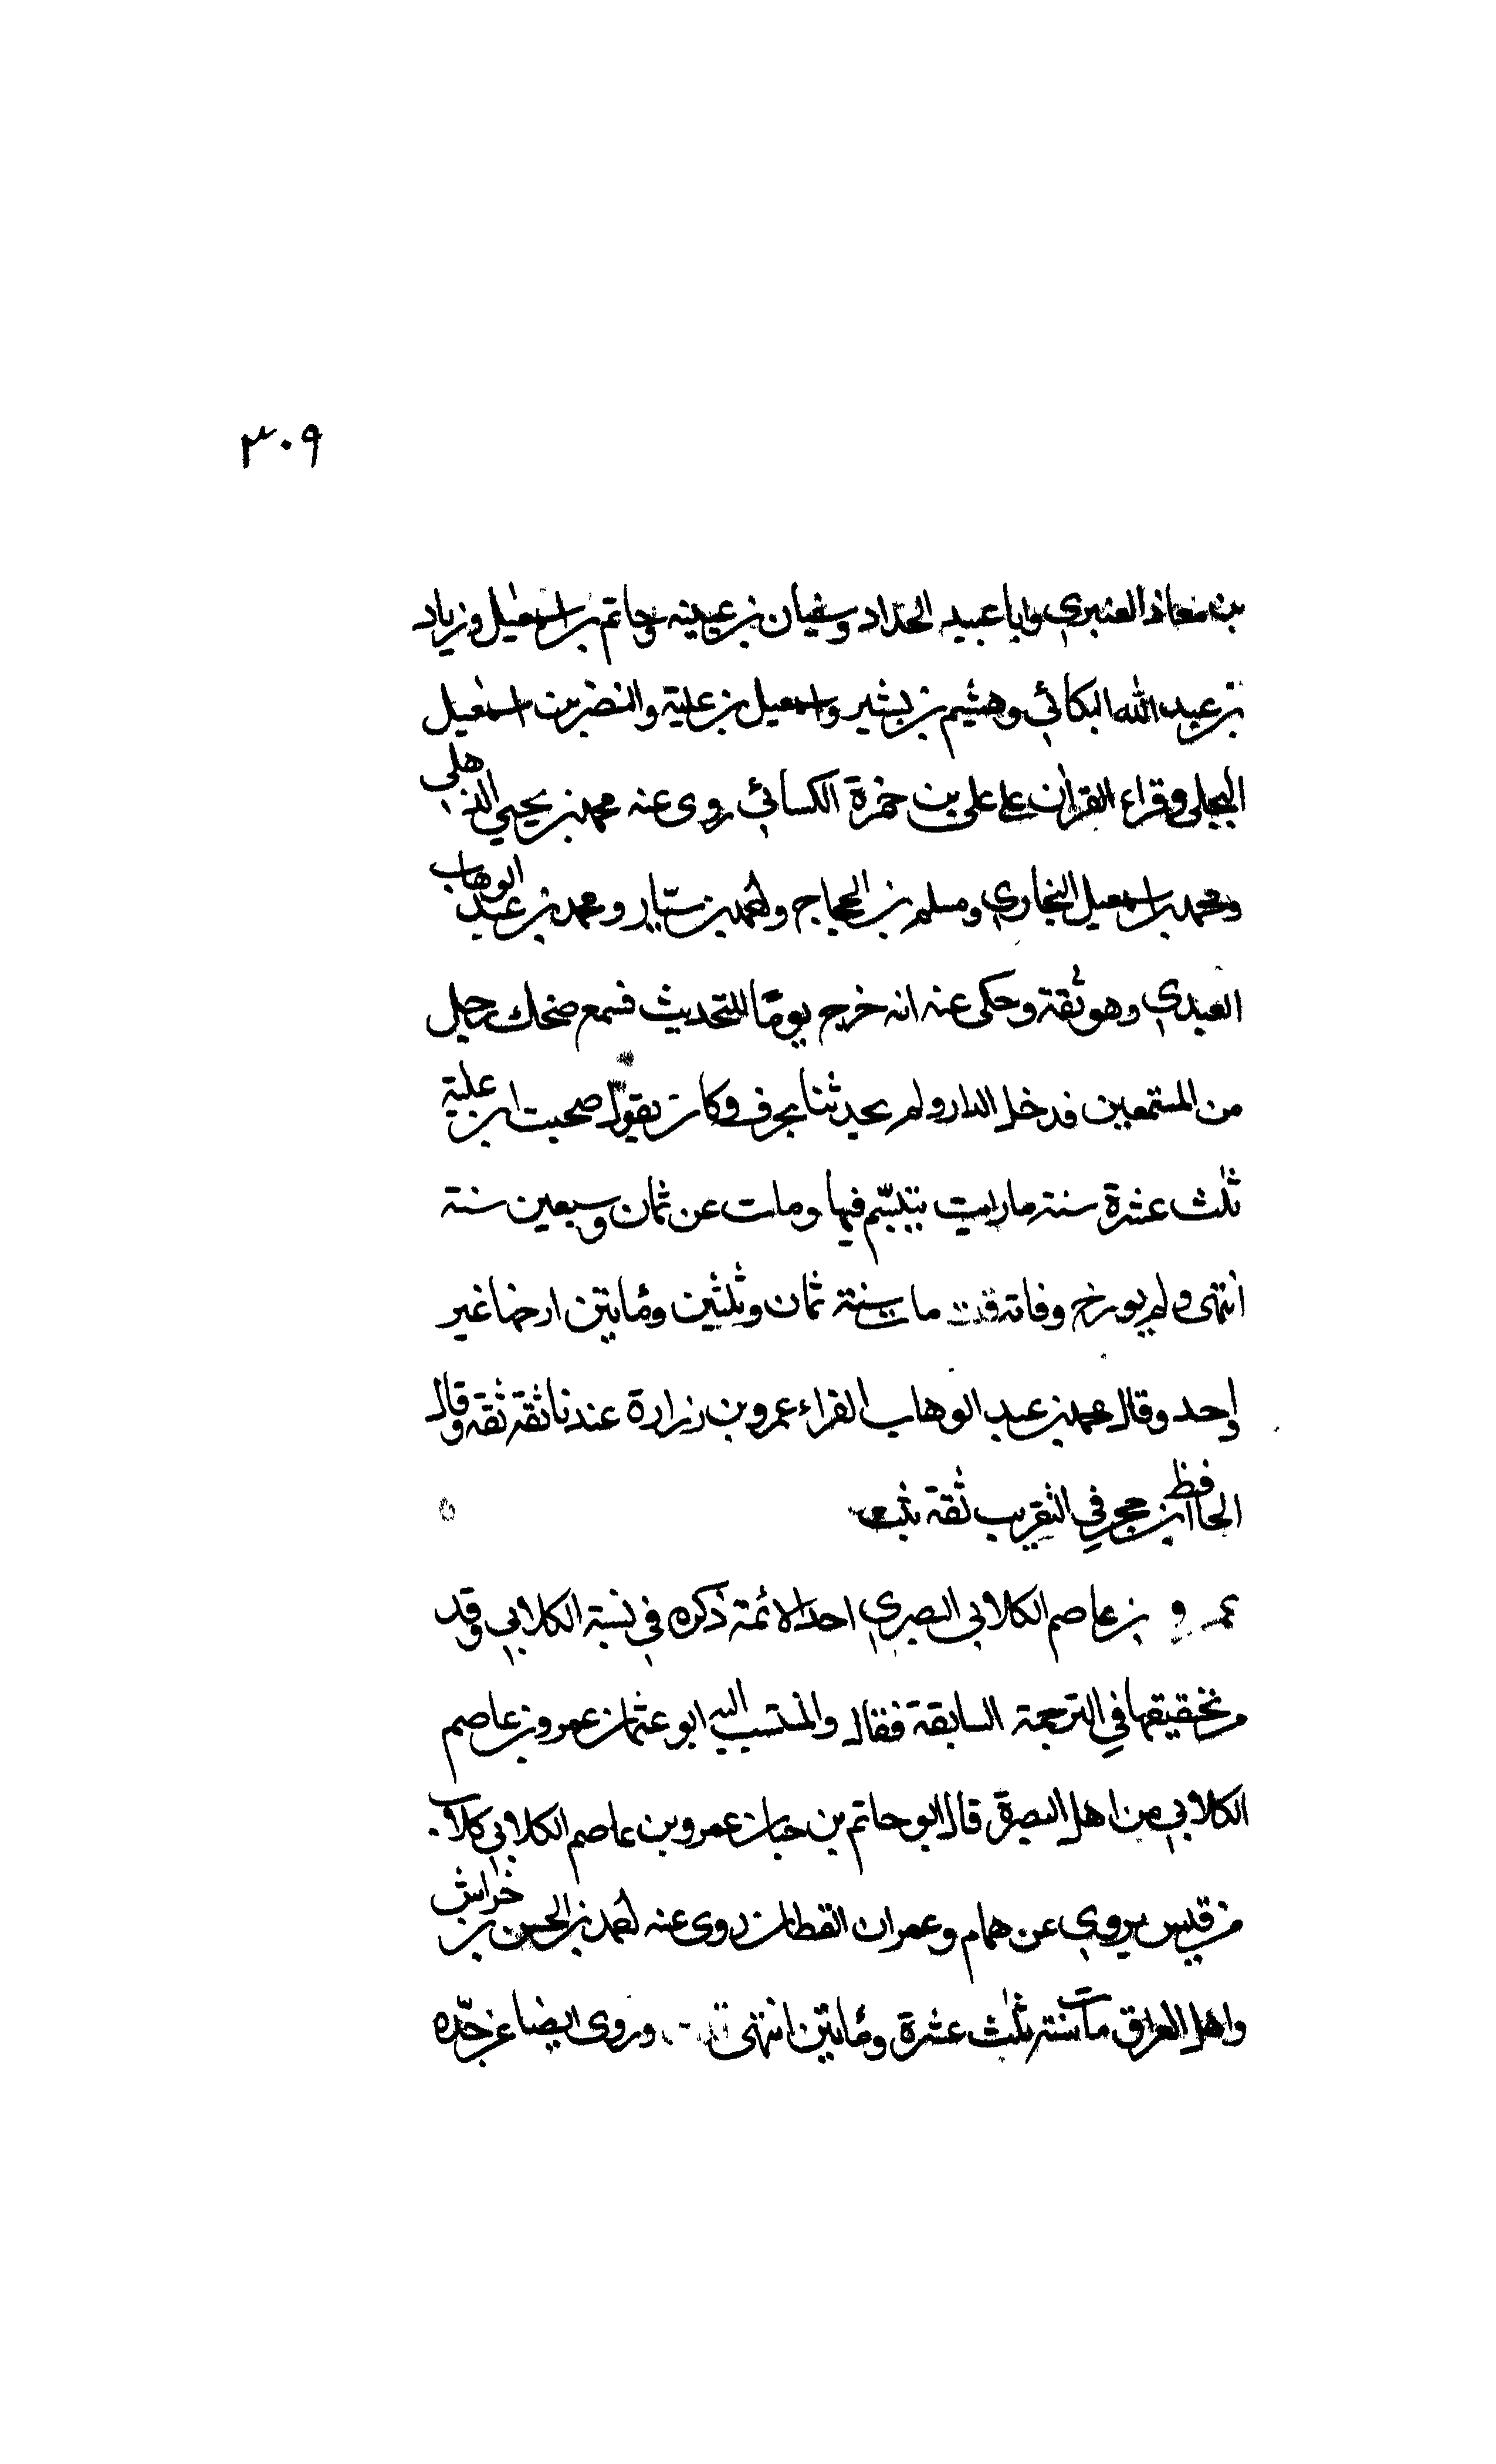 ٣٠٩
بن معاذ العنبري وابا عبيد الحداد وسفيان بن عيينه وحاتم بن اسمعيل وزياد
بن عبد الله البكائي وهشيم بن بشير واسمعيل بن علية والنضر بن اسمعيل
البجلي وقراء القران على علي بن حمزة الكسائي روى عنه محمد بن يحيي الذهلي
ومحمد بن اسمعيل البخاري ومسلم بن الحجاج واحمد بن سيّار ومحمد بن عبد الوهاب
العبدي وهو ثقة وحكى عنه انه خرج يومًا للتحديث فسمع ضحك رجل
من المستمعين فدخل الدار ولم يحدثنا بحرف وكان يقول صحبت ابن علية
ثلث عشرة سنة ما رايت يتبسّم فيها ومات عن ثمان وسبعين سنة
انتهى ولم يورخ وفاته قلت مات سنة ثمان وثلثين ومائتين ارخها غير
واحد وقال محمد بن عبد الوهاب الفراء عمرو بن زرارة عندنا ثقة ثقة وقال
الحافظ ابن حجر في التقريب ثقة ثبت
عمرو بن عاصم الكلابي البصري احد الائمة ذكره في نسبة الكلابي وقد
مر تحقيقها في الترجمة السابقة فقال والمنتسب اليه ابو عثمان عمرو بن عاصم
الكلابي من اهل البصرة قال ابو حاتم بن حبان عمرو بن عاصم الكلابي كلاب
من قيس يروي عن همام وعمران القطان روى عنه احمد بن الحسن بن خراش
واهل العراق مات سنة ثلث عشرة ومائتين انتهى وروى ايضا عن جدّه